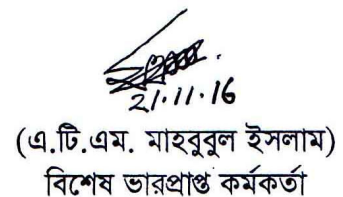 21.11.16
(এ.টি.এম. মাহবুবুল ইসলাম)
বিশেষ ভারপ্রাপ্ত কর্মকর্তা